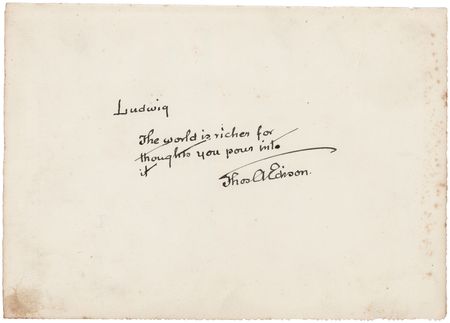 Ludwig
The world is richer for
thoughts you pour into
it
Thos A Edison.